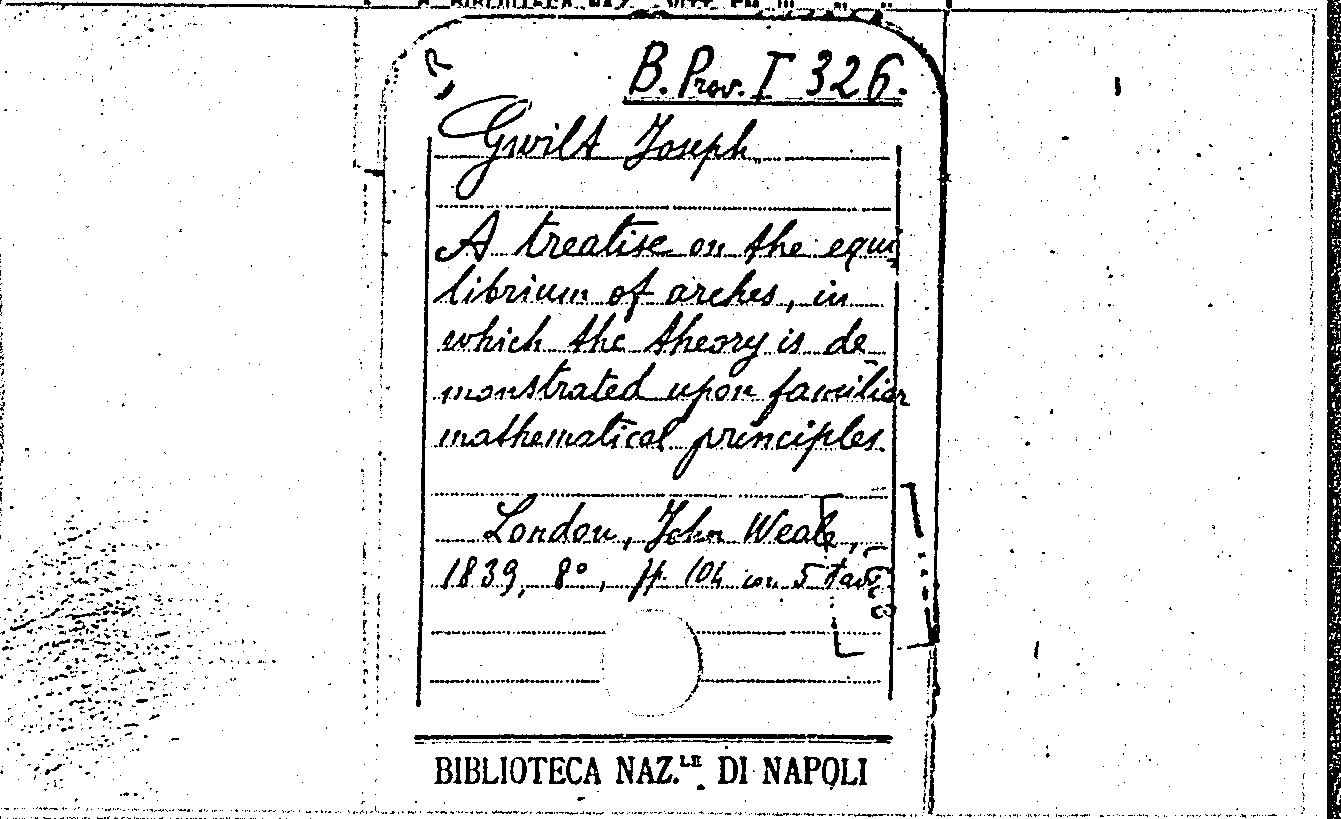 B. Prov. I 326.
Gwilt Joseph
A treatise on the equi
librium of arches, in
which the theory is de
monstrated upon familiar
mathematical principles.
London, John Weale,
1839, 8°, pp. 104 con 5 tav.
BIBLIOTECA NAZ.LE DI NAPOLI